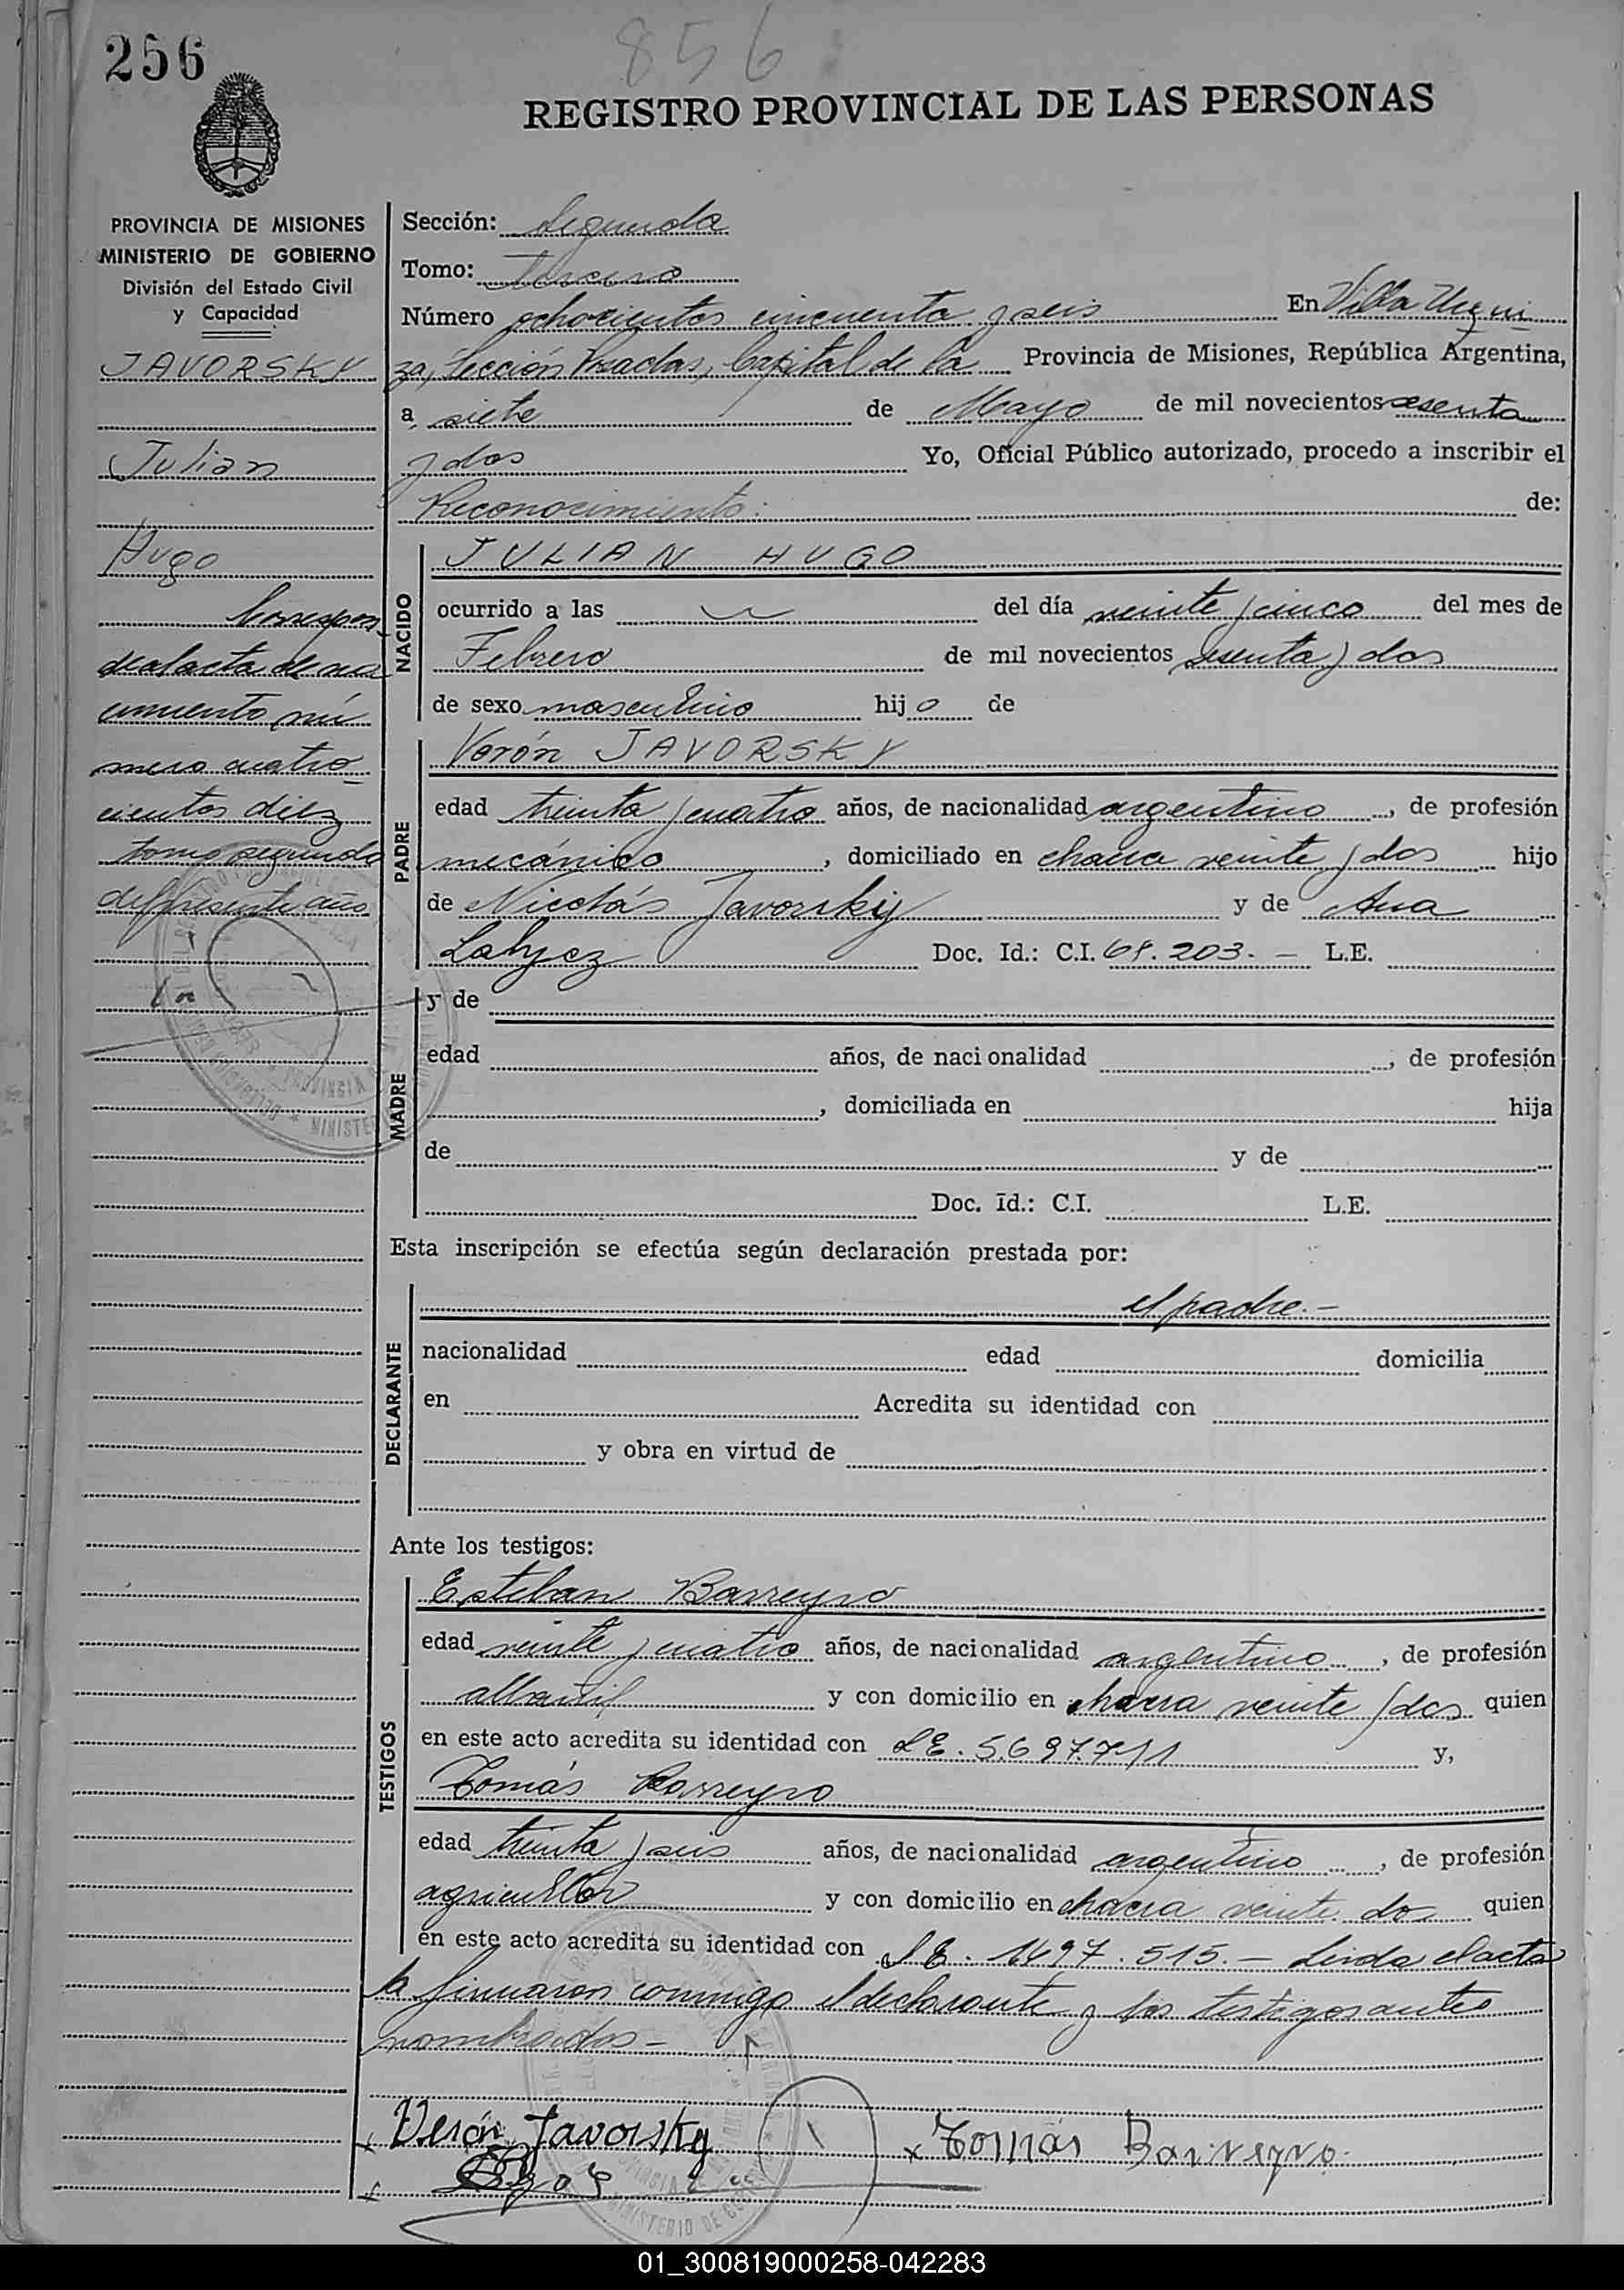 256
856
REGISTRO PROVINCIAL DE LAS PERSONAS
PROVINCIA DE MISIONES
MINISTERIO DE GOBIERNO
División del Estado Civil
y Capacidad
JAVORSKY
Julian
Hugo
Correspon
de al acta de naci
miento nú
mero cuatro
cientos diez
tomo segundo
del presente año
Sección: Segunda
Tomo: Tercero
Número ochocientos cincuenta y seis En Villa Urqui
za, Sección Posadas, Capital de la Provincia de Misiones, República Argentina,
a siete de Mayo de mil novecientos sesenta
y dos Yo, Oficial Público autorizado, procedo a inscribir el
Reconocimiento: de:
NACIDO
JULIAN HUGO
ocurrido a las del día veinte y cinco del mes de
Febrero de mil novecientos sesenta y dos
de sexo masculino hijo de
PADRE
Verón JAVORSKY
edad treinta y cuatro años, de nacionalidad argentino, de profesión
mecánico, domiciliado en chacra veinte y dos hijo
de Nicolás Javorsky y de Ana
Doc. Id.: C.I. 203.- L.E.
MADRE
y de
edad años, de nacionalidad , de profesión
, domiciliada en hija
de y de
Doc. Id.: C.I. L.E.
Esta inscripción se efectúa según declaración prestada por:
DECLARANTE
el padre.-
nacionalidad edad domicilia
en Acredita su identidad con
y obra en virtud de
Ante los testigos:
TESTIGOS
Esteban Barreyro
edad veinte y cuatro años, de nacionalidad argentino, de profesión
albañil y con domicilio en chacra veinte y dos quien
en este acto acredita su identidad con LE. 5.697.711 y,
Tomás Barreyro
edad treinta y seis años, de nacionalidad argentino, de profesión
agricultor y con domicilio en chacra veinte dos quien
en este acto acredita su identidad con LE. 1497.515.- Leída el acta
la firmaron conmigo el declarante y los testigos antes
nombrados-
x Verón Javorsky x Tomás Barreyro
x
01_300819000258-042283